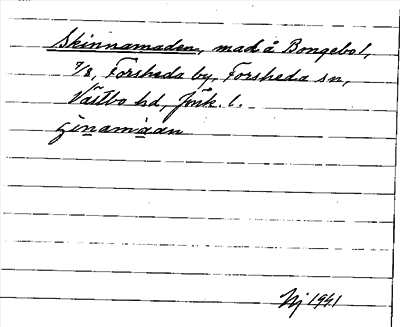 Skinnamaden, mad å Bongebol,
7/8, Forsheda by, Forsheda sn,
Västbo hd, Jönk. l.
Nj 1941